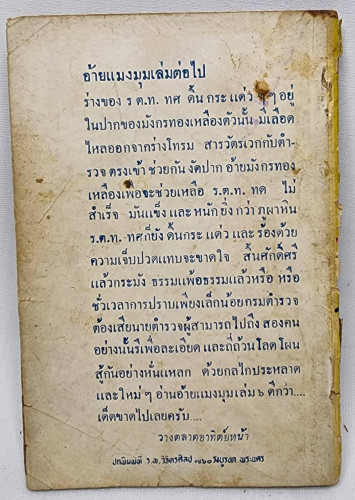 อ้ายแมงมุมเล่มต่อไป
ร่างของ ร.ต.ท. ทศ ดิ้น กระ แด่ว ๆ อยู่
ในปากของมังกรทองเหลืองตัวนั้น มีเลือด
ไหลออกจากร่างโทรม สารวัตรเวกกับตำ-
รวจ ตรงเข้า ช่วยกัน งัดปาก อ้ายมังกรทอง
เหลืองเพื่อจะช่วยเหลือ ร.ต.ท. ทด ไม่
สำเร็จ มันแข็ง และ หนัก ยิ่ง กว่า ภูผาหิน
ร.ต.ท. ทศก็ยัง ดิ้นกระ แด่ว และ ร้องด้วย
ความเจ็บปวดแทบจะขาดใจ สิ้นศักดิ์ศรี
แล้วกระมัง ธรรมแพ้อธรรมแล้วหรือ หรือ
ชั่วเวลาการปราบเพียงเล็กน้อยกรมตำรวจ
ต้องเสียนายตำรวจผู้สามารถไปถึง สองคน
อย่างนั้นรึเพื่อละเอียด และถี่ถ้วนโลดโผน
สู้กันอย่างหั่นแหลก ด้วยกลไกประหลาด
และใหม่ ๆ อ่านอ้ายแมงมุมเล่ม ๖ ดีกว่า....
เด็ดขาดไปเลยครับ....
วางตลาดอาทิตย์หน้า
ปกพิมพ์ที่ ร.พ. วิจิตรศิลป พระนคร